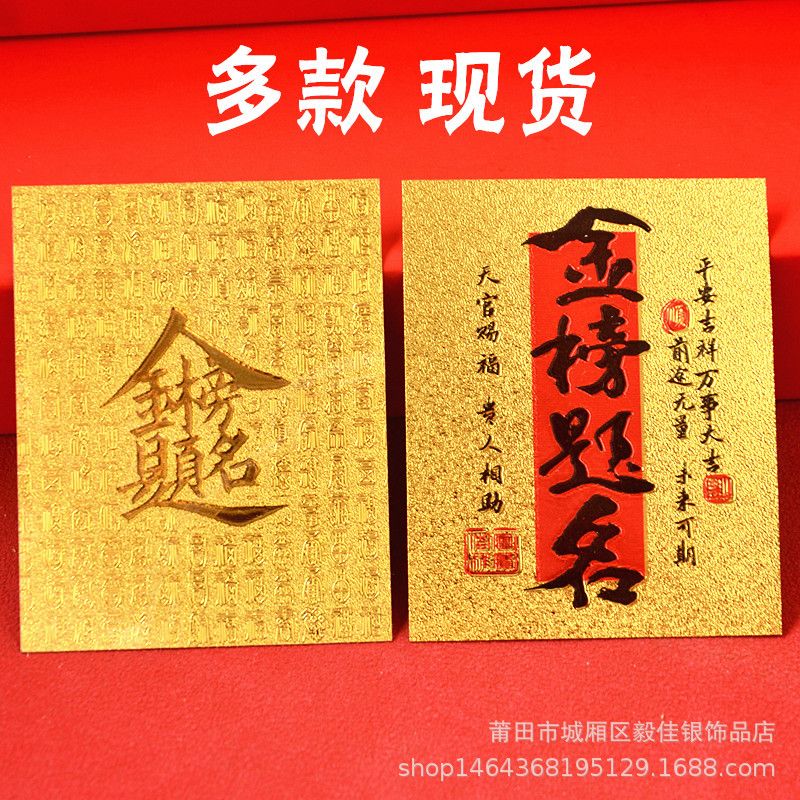 多款 现货
金榜题名
金榜题名
天官赐福 贵人相助
平安吉祥万事大吉
顺
前途无量 未来可期
莆田市城厢区毅佳银饰品店
shop1464368195129.1688.com